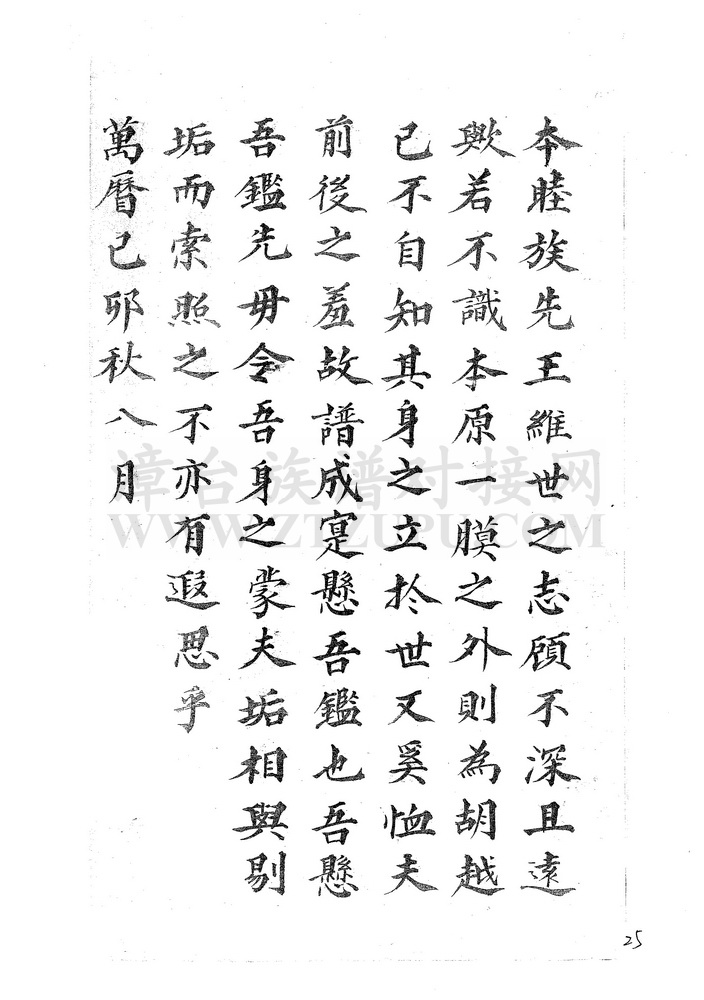 本睦族先王維世之志顧不深且遠
歟若不識本原一膜之外則為胡越
已不自知其身之立於世又奚恤夫
前後之羞故譜成寔懸吾鑑也吾懸
吾鑑先毋令吾身之蒙夫垢相與剔
垢而索照之不亦有遐思乎
萬曆己卯秋八月
漳台族谱对接网
WWW.ZTZUPU.COM
25